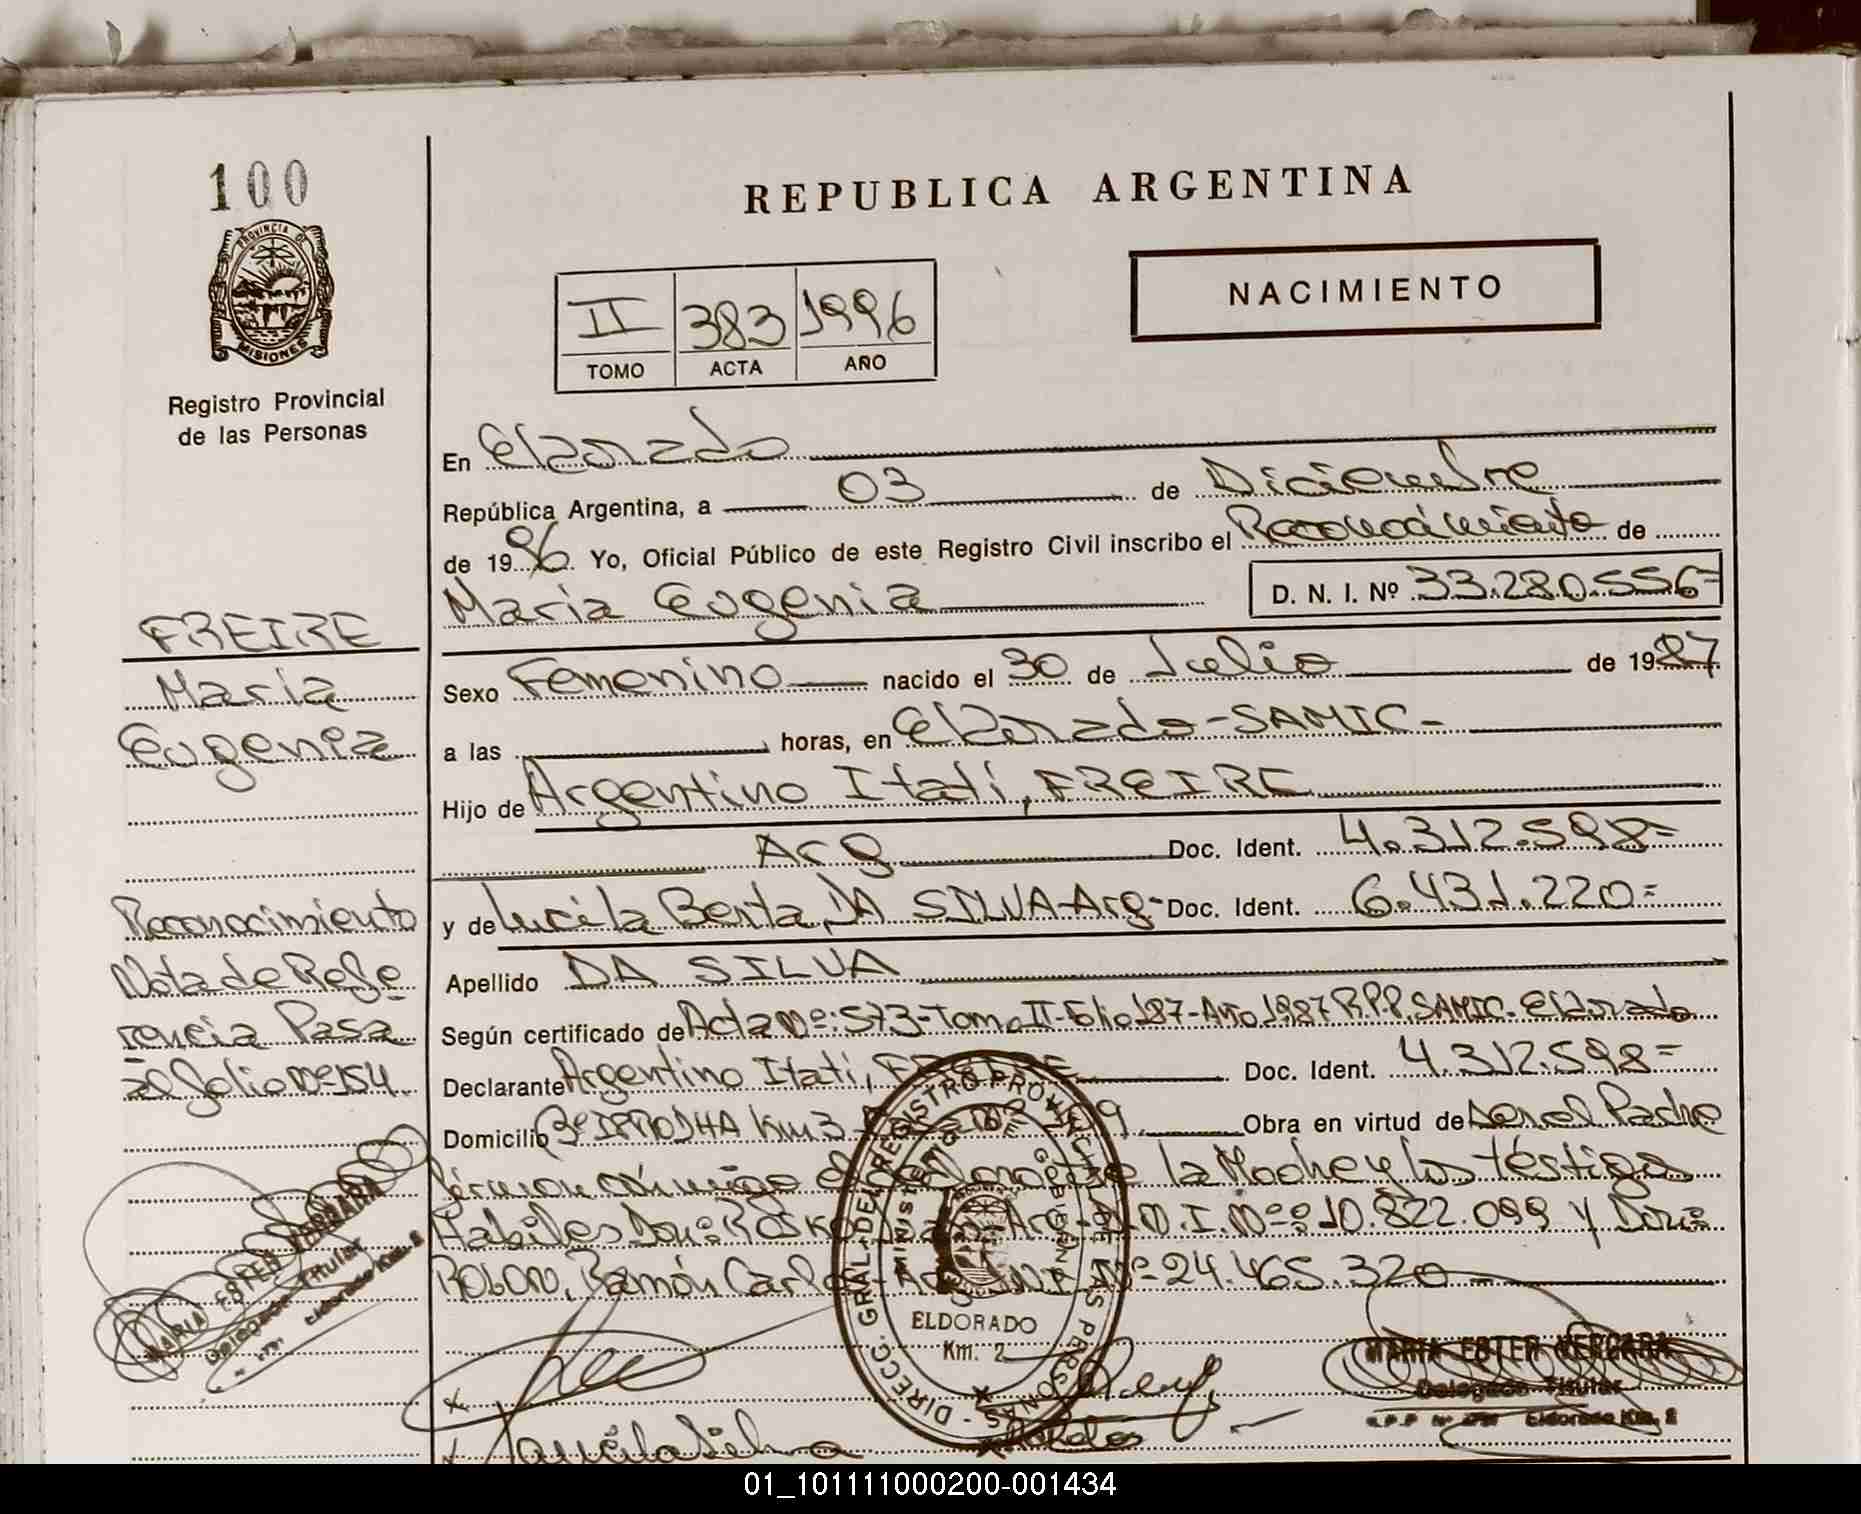 100
PROVINCIA DE
MISIONES
Registro Provincial
de las Personas
REPUBLICA ARGENTINA
NACIMIENTO
II 383 1996
TOMO ACTA AÑO
En Eldorado
República Argentina, a 03 de Diciembre
de 1996 Yo, Oficial Público de este Registro Civil inscribo el Reconocimiento de
Maria Eugenia D. N. I. Nº 33.280.556=
FREIRE
Maria
Eugenia
Sexo Femenino nacido el 30 de Julio de 1987
a las horas, en Eldorado-SAMIC-
Hijo de Argentino Itatí, FREIRE
Arg Doc. Ident. 4.312.598=
y de Lucila Berta, DA SILVA-Arg- Doc. Ident. 6.431.220=
Apellido DA SILVA
Según certificado de Acta Nº: 573-Tomo II-Folio 187-Año 1987 R.P.P. SAMIC-Eldorado
Declarante Argentino Itatí, FREIRE Doc. Ident. 4.312.598=
Domicilio Bº IPRODHA Km 3 Obra en virtud de ser el Padre
firman conmigo el la Madre y los testigos
Habiles Don: Arg-D.N.I. Nº: 10.822.099 y Don:
ROLON, Ramón Carlos-Arg D.N.I. Nº-24.465.320
Reconocimiento
Nota de Refe
rencia Pasa
al folio Nº 154
MARIA ESTER VERGARA
Delegado Titular
Eldorado Km. 2
DIRECC. GRAL. DEL REGISTRO PROV. DE LAS PERSONAS
MINISTERIO DE
ELDORADO
Km. 2
MARIA ESTER VERGARA
Delegado Titular
Eldorado Km. 2
01_101111000200-001434